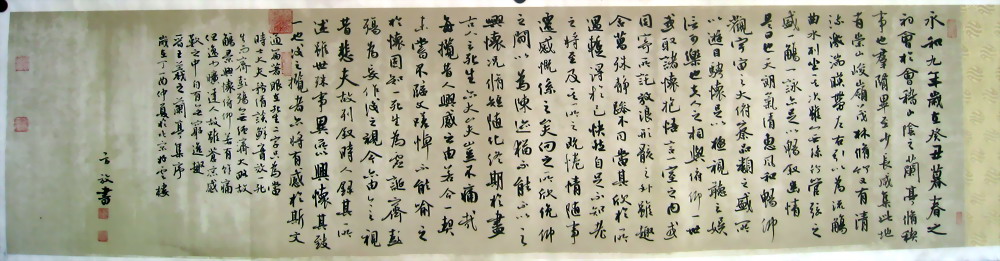 永和九年歲在癸丑暮春之
初會於會稽山陰之蘭亭脩稧
事也羣賢畢至少長咸集此地
有崇山峻嶺茂林脩竹又有清
流激湍暎帶左右引以為流觴
曲水列坐其次雖無絲竹管弦之
盛一觴一詠亦足以暢敘幽情
是日也天朗氣清惠風和暢仰
觀宇宙之大俯察品類之盛所
以遊目騁懷足以極視聽之娛
信可樂也夫人之相與俯仰一世
或取諸懷抱悟言一室之內或
因寄所託放浪形骸之外雖趣
舍萬殊靜躁不同當其欣於所
遇暫得於己快然自足不知老
之將至及其所之既惓情隨事
遷感慨係之矣向之所欣俛仰
之間以為陳迹猶不能不以之
興懷況脩短隨化終期於盡
古人云死生亦大矣豈不痛哉
每攬昔人興感之由若合一契
未嘗不臨文嗟悼不能喻之
於懷固知一死生為虛誕齊彭
殤為妄作後之視今亦由今之視
昔悲夫故列敘時人錄其所
述雖世殊事異所以興懷其致
一也後之攬者亦將有感於斯文
時士大夫
生而齊彭殤
晉王羲之蘭亭集序
歲在丁酉仲夏於北京
書